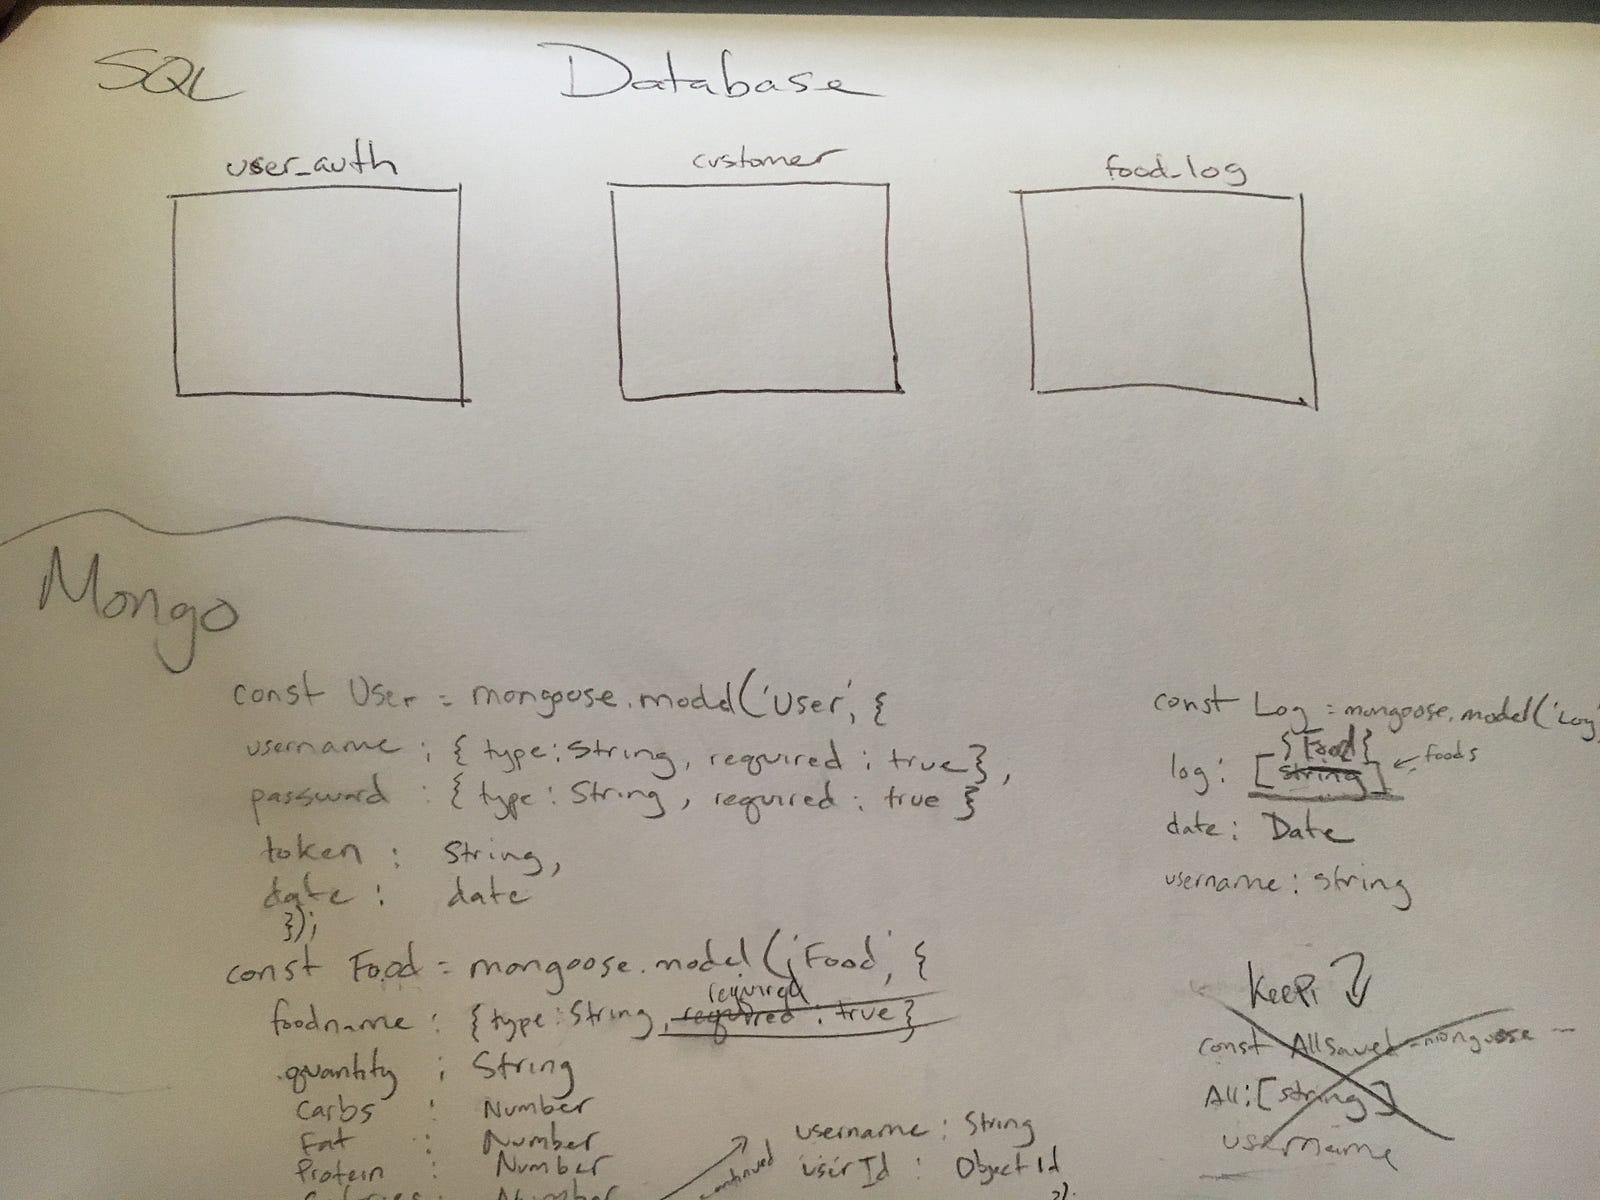 SQL
Database
user_auth
customer
food_log
Mongo
const User = mongoose.model('User', {
username : { type: String, required : true },
password : { type : String, required : true }
token : String,
date : date
});
const Food = mongoose.model('Food', {
required
foodname : { type : String, required : true }
quantity : String
Carbs : Number
Fat : Number
Protein : Number
Calories : Number
continued
username : String
userId : ObjectId
});
const Log = mongoose.model('Log'
{Food}
log : [string] ← foods
date : Date
username : string
Keep
const AllSaved = mongoose --
All : [string]
username